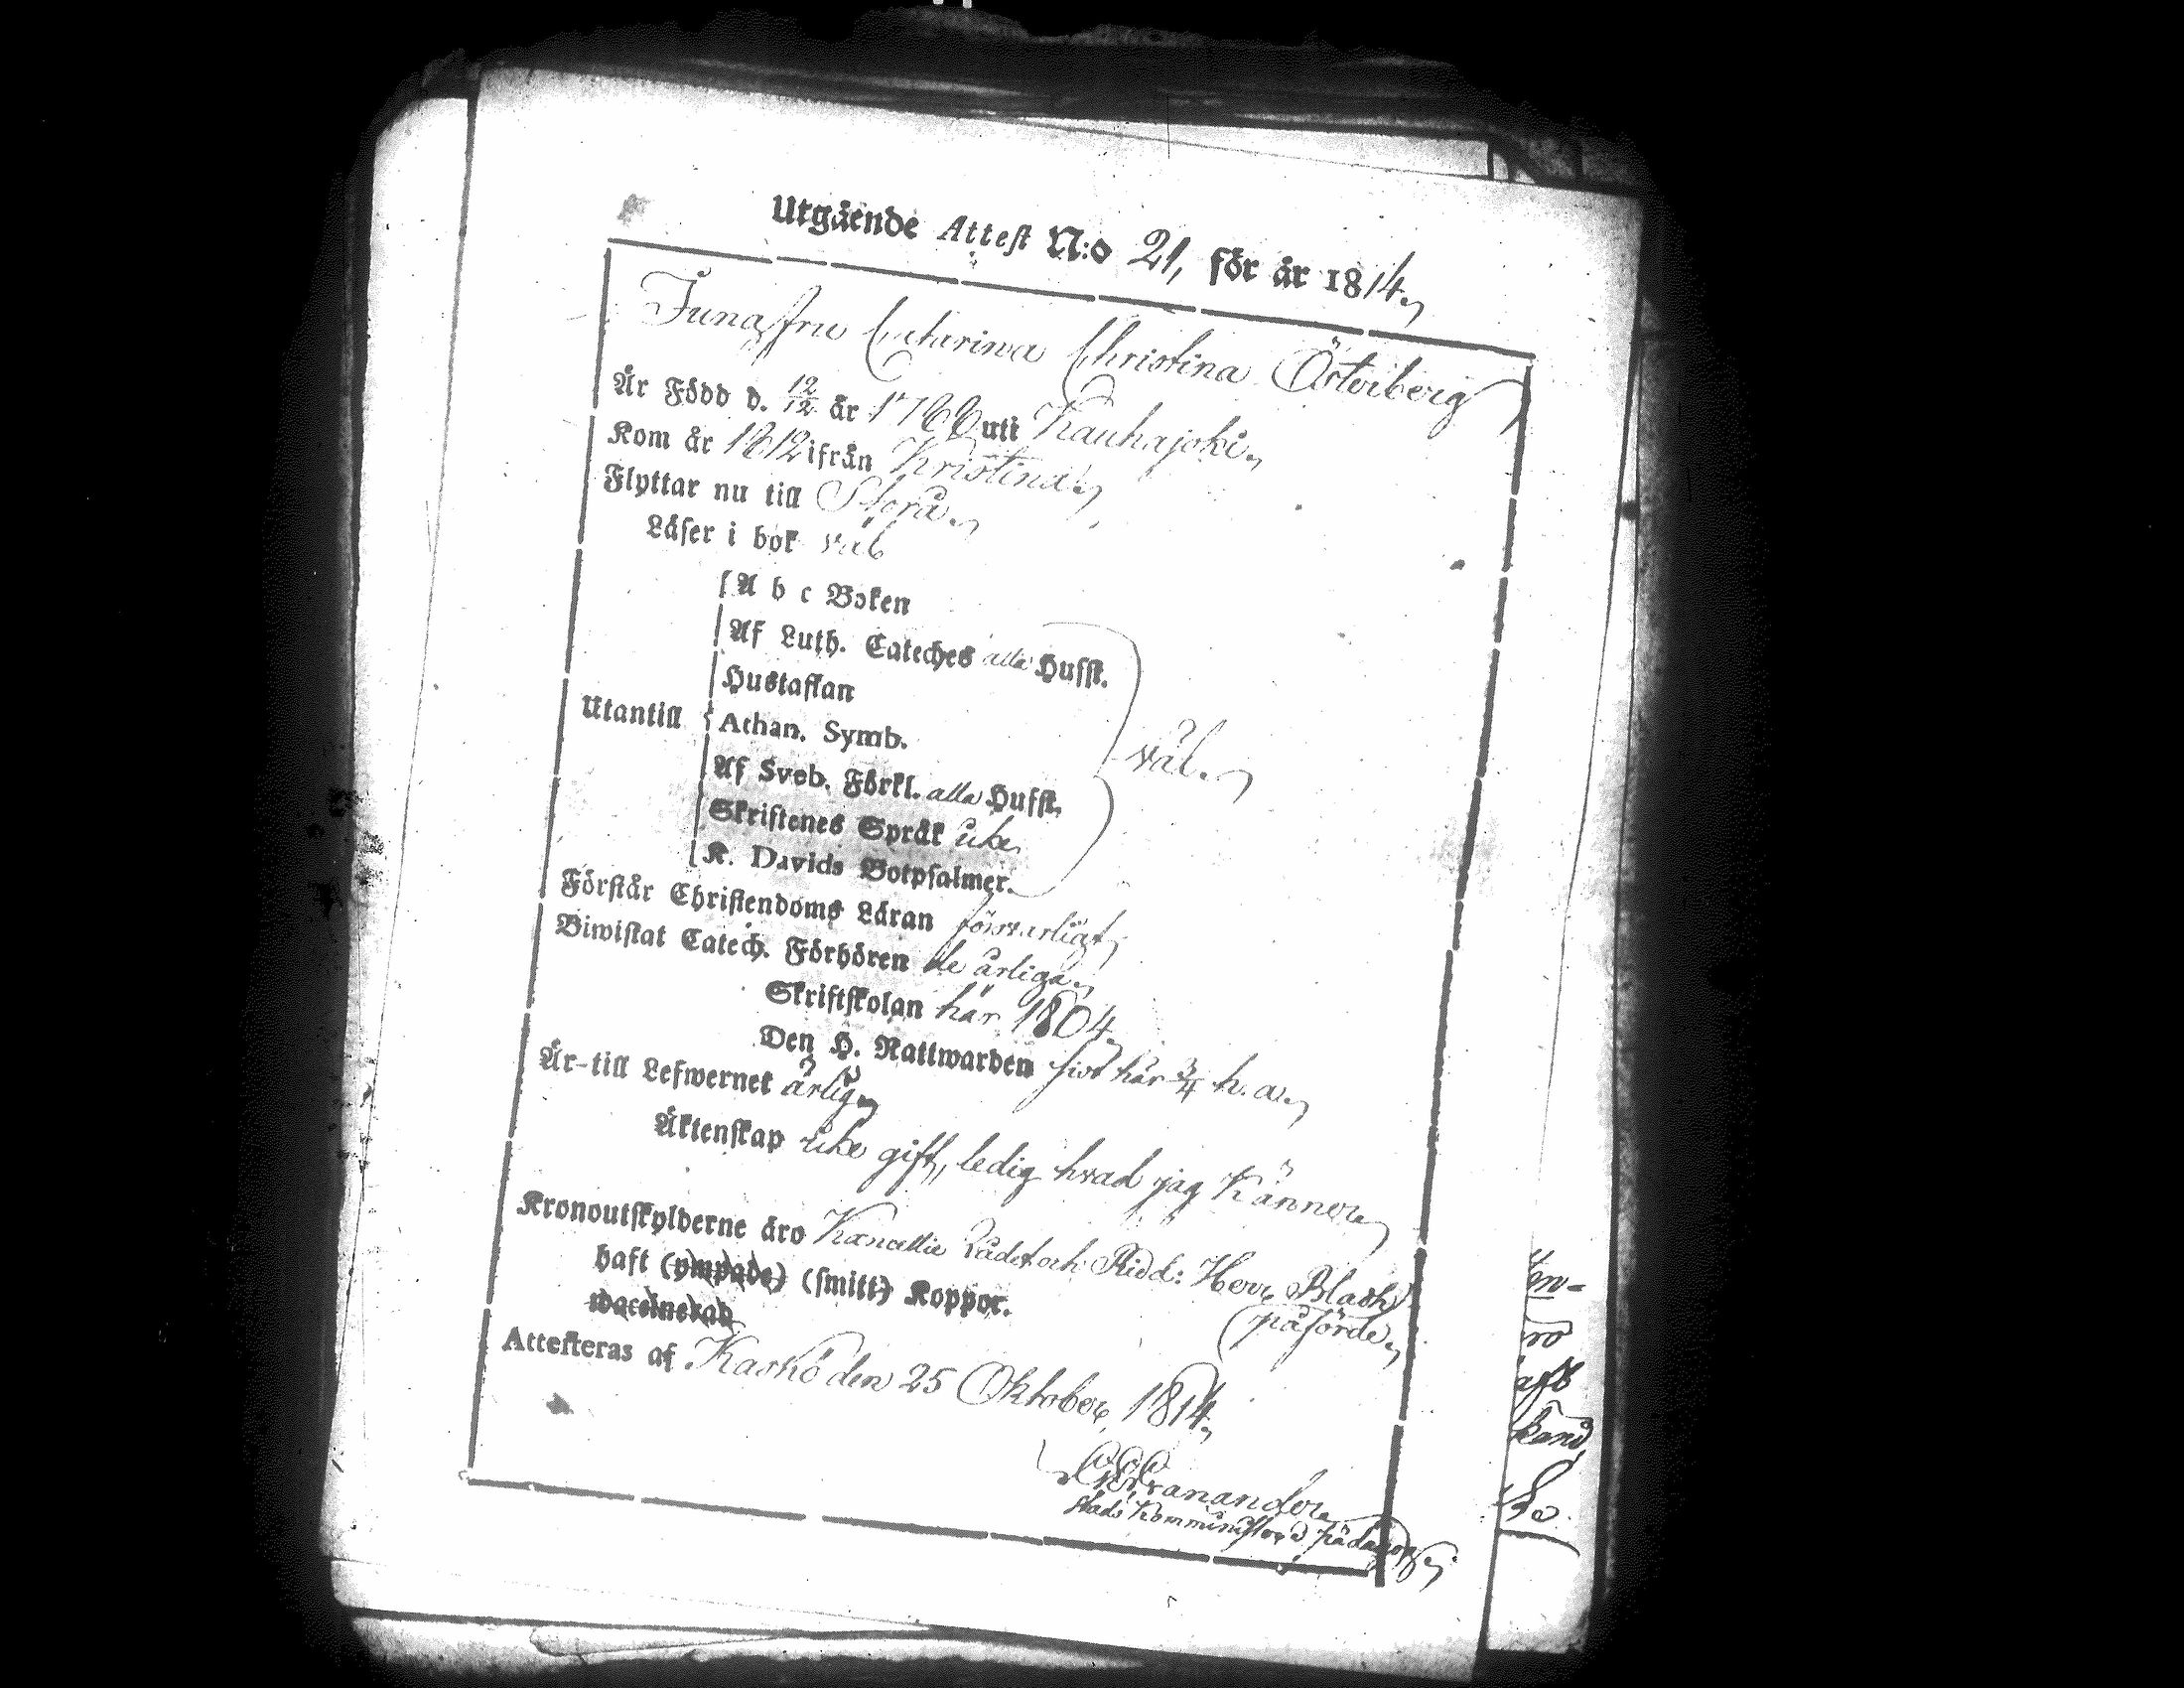 Utgående Attest N:o 21, för år 1814.
Jungfru Catharina Christina Österberg
Är Född d. 12/12 år 1766 uti Kauhajoki.
Kom år 1812 ifrån Kristina.
Flyttar nu till Storå.
Läser i bok väl
A b c Boken
Af Luth. Cateches alla Hufst.
Hustaflan
Utantill Athan. Symb. väl.
Af Sveb. Förkl. alla Hufst.
Skriftenes Språk icke
K. Davids Botpsalmer.
Förstår Christendoms Läran försvarligt
Biwistat Catech. Förhören de årliga.
Skriftskolan här 1804.
Den H. Nattwarden sist här 3/4 h. a.
Är till Lefwernet ärlig.
Äktenskap icke gift, ledig hvad jag känner.
Kronoutskylderne äro Kancellie Rådet och Ridd: Herr Bladh
påförde.
haft (ympade) (smitt) Koppor.
waccinerad
Attesteras af Kaskö den 25 Oktober 1814.
Granander
Stads Komminister & Pädagog